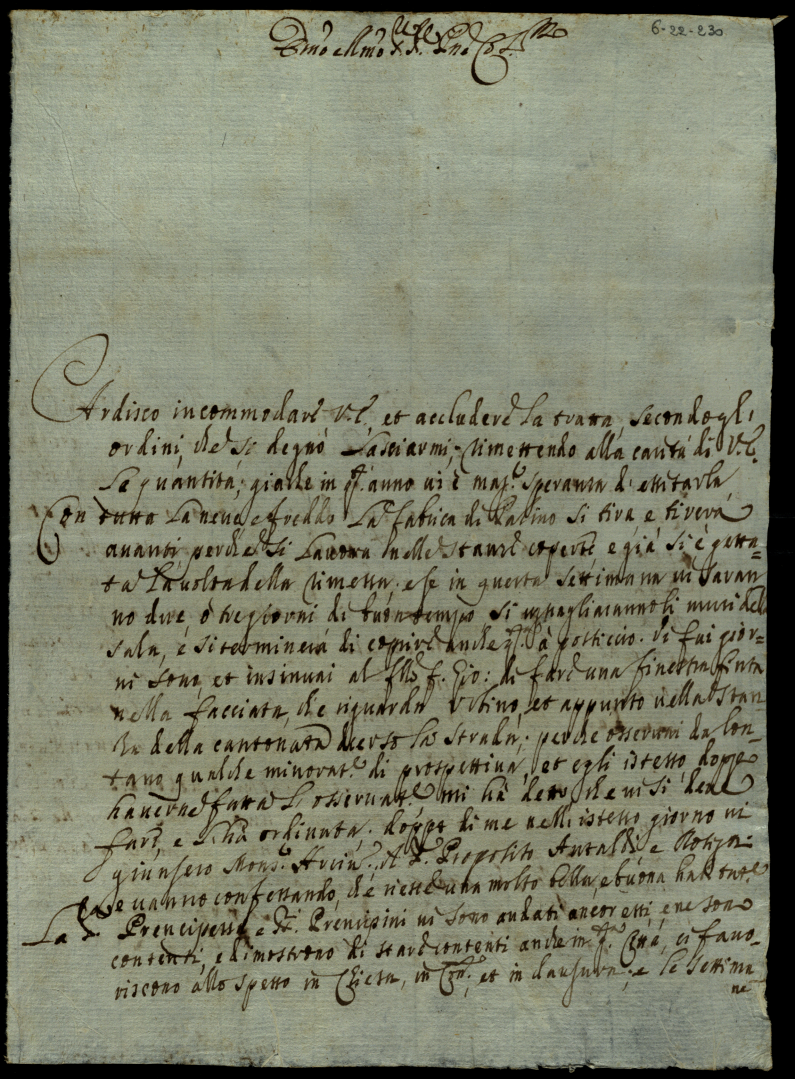 6-22-230
Em̃o e Rmo Sig.r Sig.r Pñe Col.mo
Ardisco incommodare V.E., et accludere la tratta, secondo gl'
ordini, che si degnò lasciarmi, rimettendo alla carità di V.E.
la quantità, giache in q.to anno ui è mag.r speranza di essitarla
Con tutta la neue, e freddo la fabrica di Rasino si tira, e tirerà
auanti perche si lauora nelle stanze coperte e già si è getta=
ta la uolta della rimetta; e se in questa settimana ui saran
no due, ò tre giorni di buon tempo si uguagliarannoli muri della
sala, e si terminerà di coprire anche q.ta à posticcio. Vi fui gior=
ni sono, et insinuai al f. Gio: di fare una finestra finta
nella facciata, che riguarda Urbino, et appunto nella stan
za della cantonata uerso la strada, perche osseruai da lon=
tano qualche minorat.e di prospettiua, et egli istesso doppo
hauerne fatta l'osseruat.e mi hà detto, che ui si deue
fare, e l'hà ordinata. doppo di me nell'istesso giorno ui
giunsero Mons.r Arciu.o, il Sig.r Proposito Antaldi, e
e uanno confessando, che riesce una molto bella, e buona habitat.e
La Sig.ra Prencipessa e Sig.ri Prencipini ui sono andati ancor essi, e ne sono
contenti, e dimostrono di stare contenti anche in q.ta Città, ci fauo=
riscono allo spesso in Chiesa, in, et in clausura; e le settima
ne